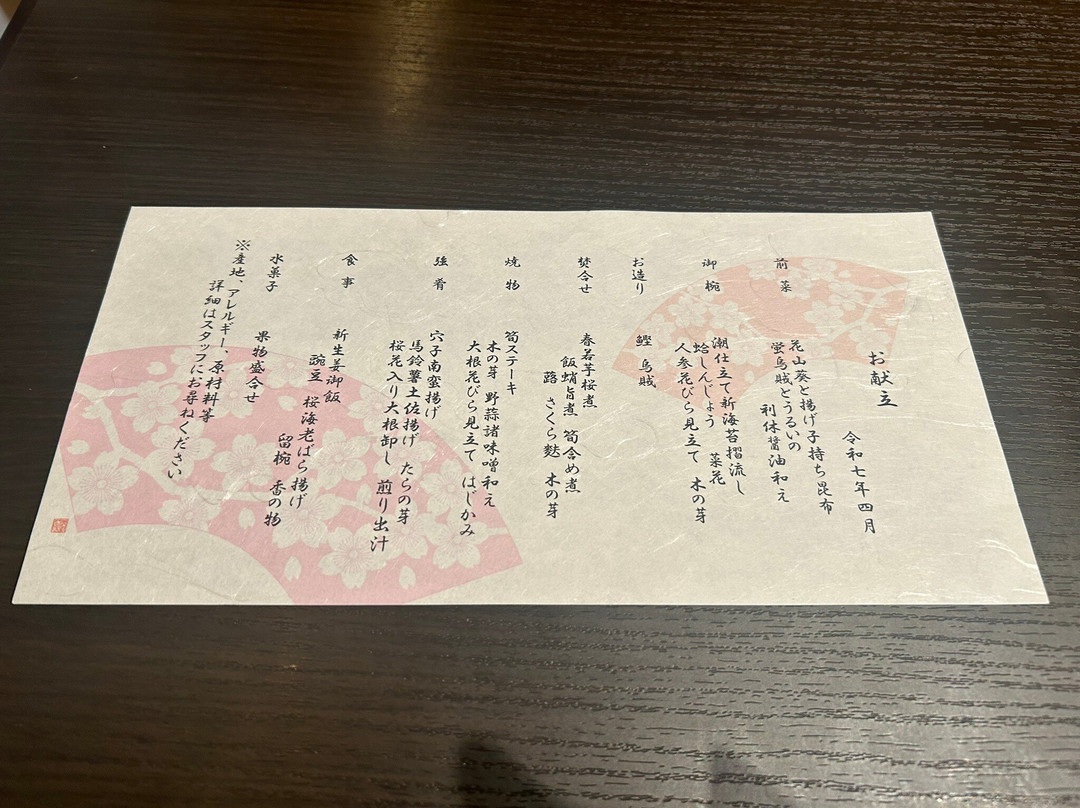 お献立
令和七年四月
前菜
花山葵と揚げ子持ち昆布
蛍烏賊とうるいの
利休醤油和え
御椀
潮仕立て新海苔摺流し
蛤しんじょう 菜花
人参花びら見立て 木の芽
お造り
鰹 烏賊
焚合せ
春若芋桜煮
飯蛸旨煮 筍含め煮
蕗 さくら麩 木の芽
焼物
筍ステーキ
木の芽 野蒜諸味噌和え
大根花びら見立て はじかみ
強肴
穴子南蛮揚げ
馬鈴薯土佐揚げ たらの芽
桜花入り大根卸し 煎り出汁
食事
新生姜御飯
豌豆 桜海老ばら揚げ
留椀 香の物
水菓子
果物盛合せ
※産地、アレルギー、原材料等
詳細はスタッフにお尋ねください